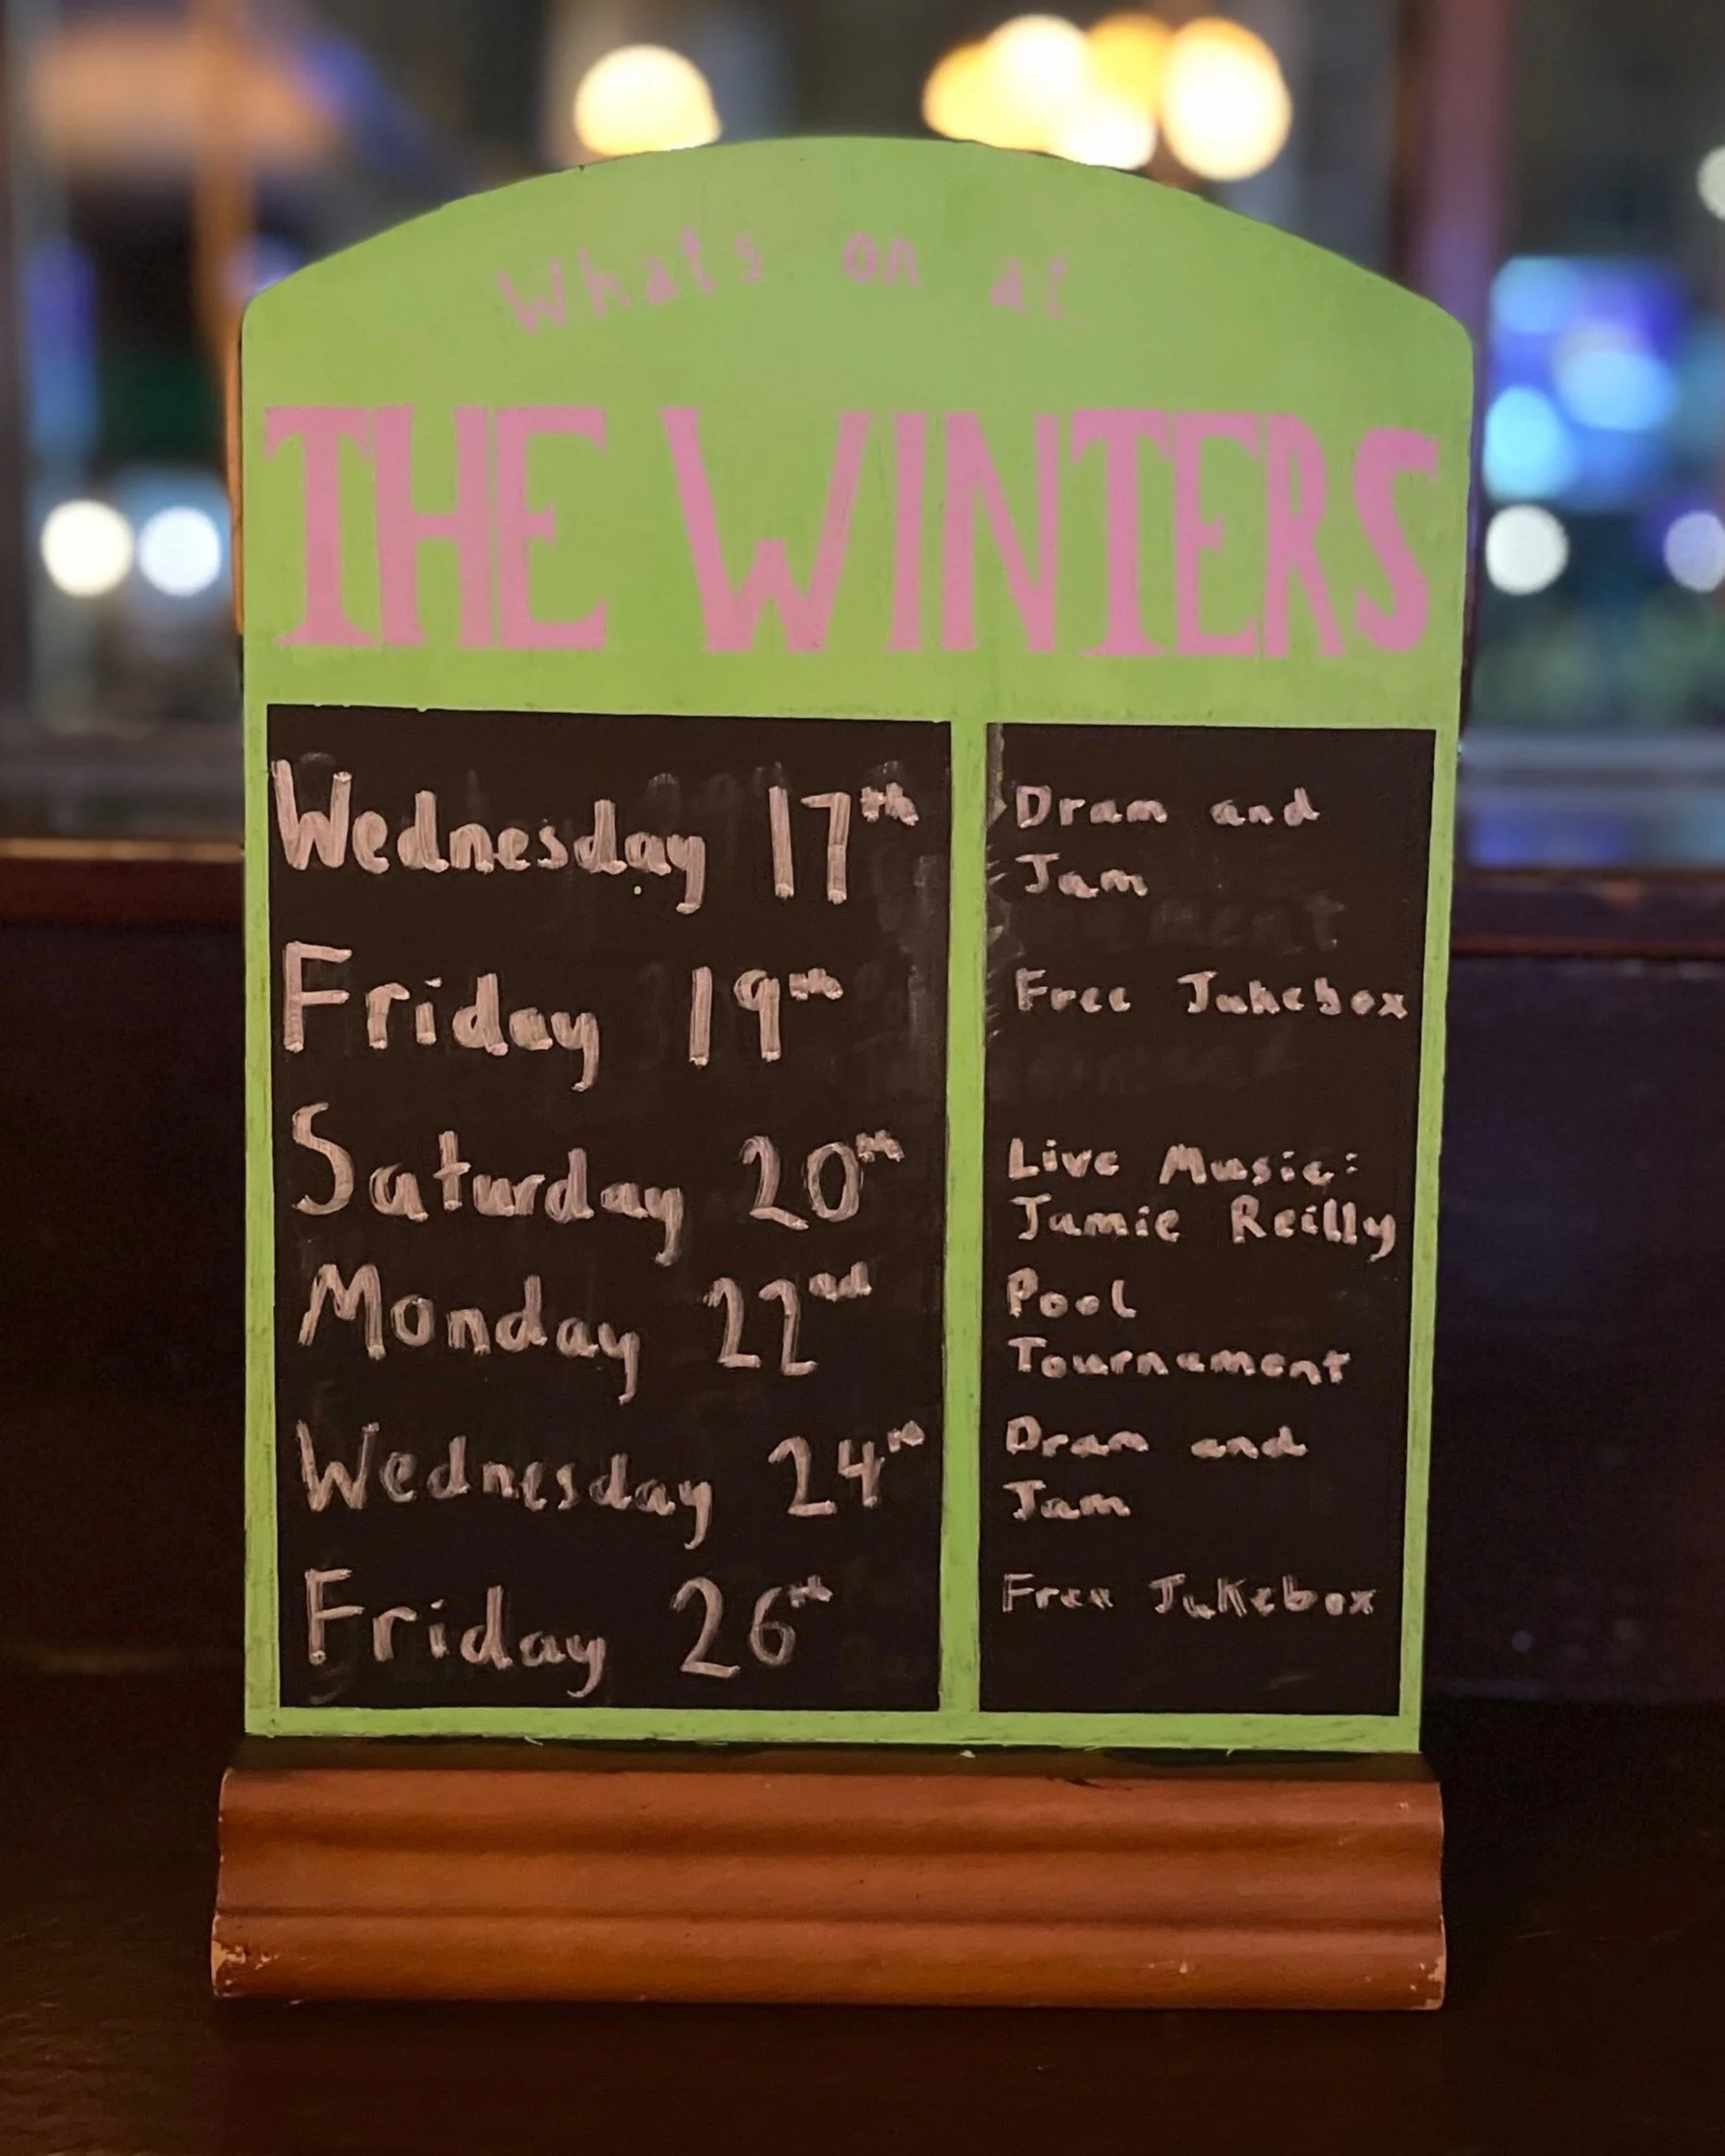 Whats on at
THE WINTERS
Wednesday 17th
Dram and
Jam
Friday 19th
Free Jukebox
Saturday 20th
Live Music:
Jamie Reilly
Monday 22nd
Pool
Tournament
Wednesday 24th
Dram and
Jam
Friday 26th
Free Jukebox